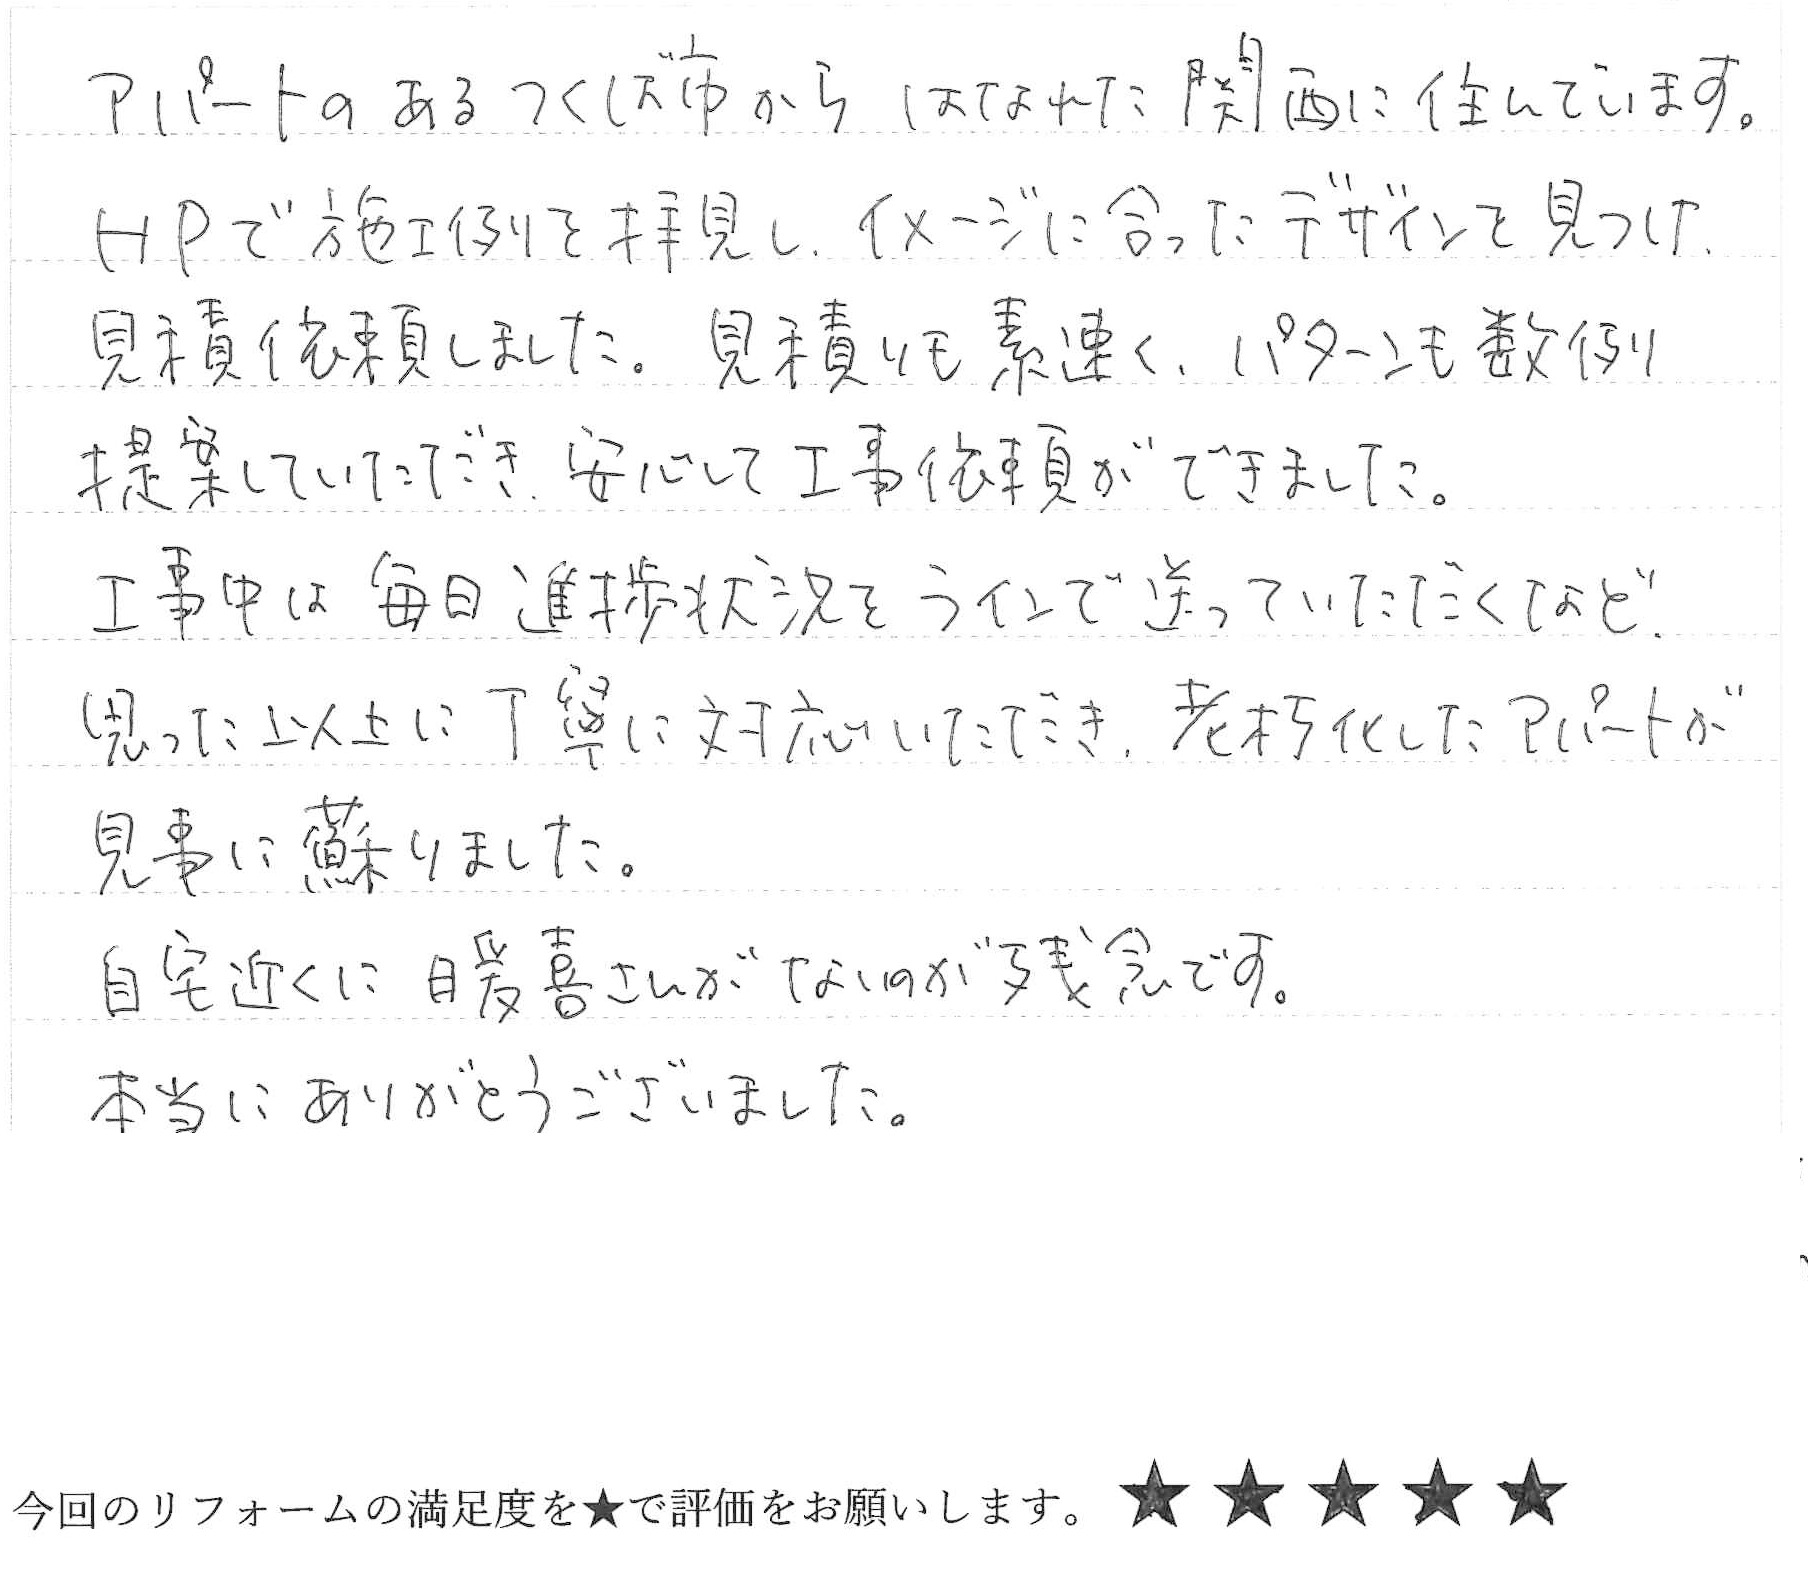 アパートのあるつくば市からはなれた関西に住んでいます。
HPで施工例を拝見し、イメージに合ったデザインを見つけ、
見積依頼しました。見積りも素速く、パターンも数例
提案していただき、安心して工事依頼ができました。
工事中は毎日進捗状況をラインで送っていただくなど、
思った以上に丁寧に対応いただき、老朽化したアパートが
見事に蘇りました。
自宅近くに暖喜さんがないのが残念です。
本当にありがとうございました。
今回のリフォームの満足度を★で評価をお願いします。 ★★★★★